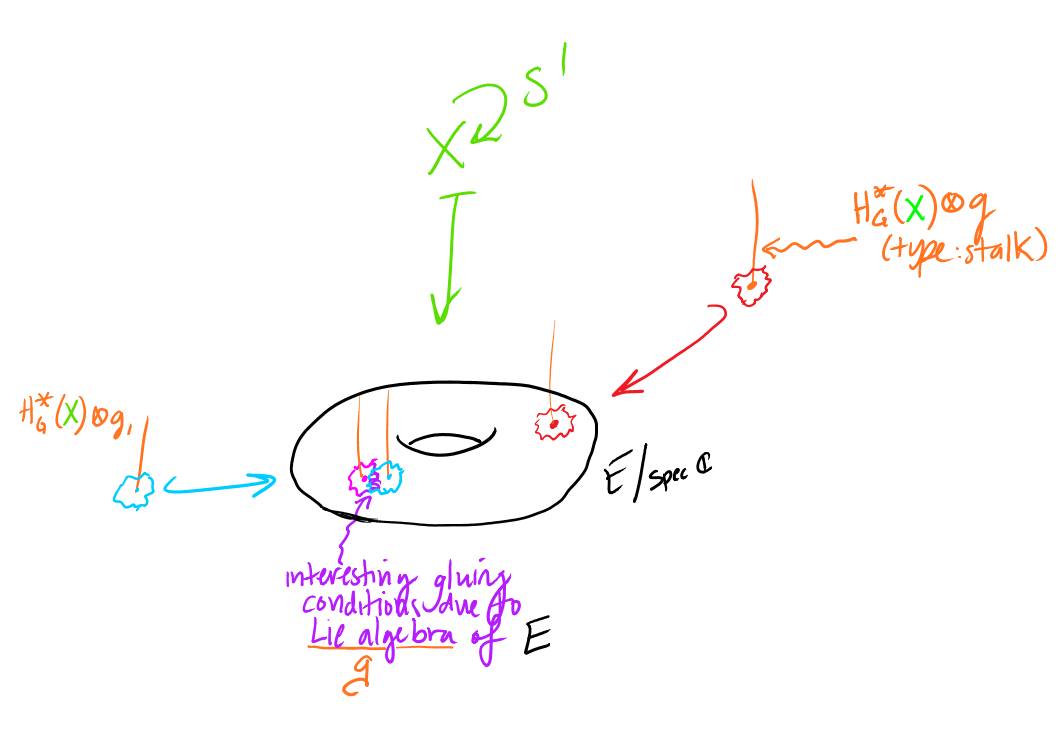 X S¹
H*_G(X)⊗g
(type:stalk)
H*_G(X)⊗g,
E/spec ℂ
interesting gluing
conditions due to
Lie algebra of E
g